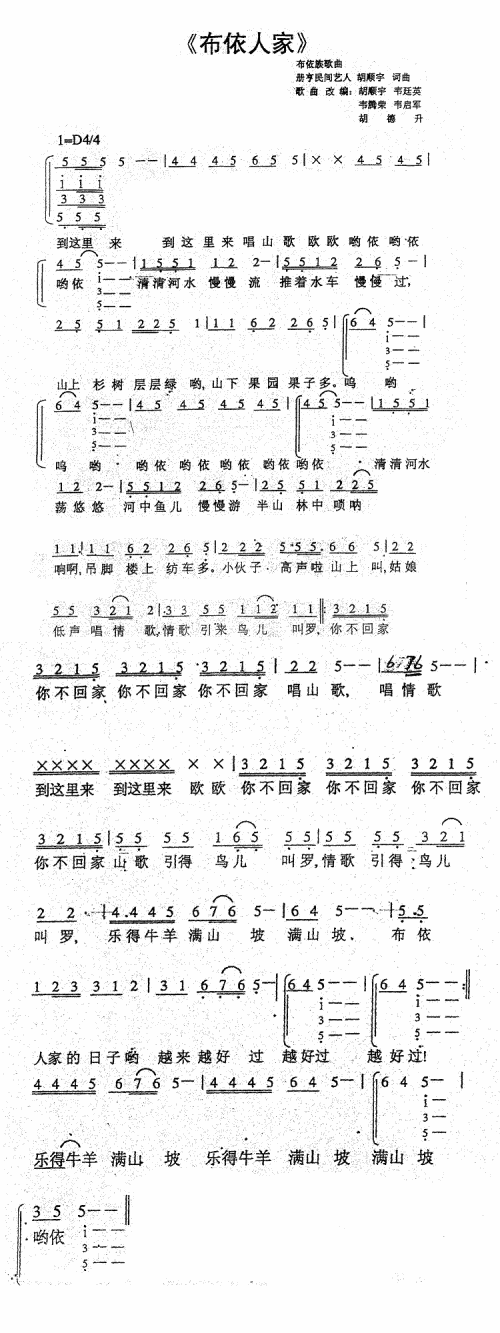 《布依人家》
布依族歌曲
册亨民间艺人 胡顺宇 词曲
歌曲改编：胡顺宇 韦廷英
韦腾荣 韦启军
胡德升
1=D4/4
5 5 5 5 5 － － | 4 4 4 5 6 5 5 | × × 4 5 4 5 |
i i i
3 3 3
5 5 5
到这里 来 到这里来唱山歌欧欧哟依哟依
4 5 5 － － | 1 5 5 1 1 2 2 － | 5 5 1 2 2 6 5 － |
i － －
3 － －
5 － －
哟依 清清河水 慢慢 流 推着水车 慢慢 过，
2 5 5 1 2 2 5 1 | 1 1 6 2 2 6 5 | 6 4 5 － － |
i － －
3 － －
5 － －
山上 杉树 层层绿 哟，山下 果园 果子多。呜 哟
6 4 5 － － | 4 5 4 5 4 5 4 5 | 4 5 5 － － | 1 5 5 1
i － －
3 － －
5 － －
呜 哟 哟依 哟依 哟依 哟依哟依 清清河水
1 2 2 － | 5 5 1 2 2 6 5 － | 2 5 5 1 2 2 5
荡悠悠 河中鱼儿 慢慢游 半山 林中 唢呐
1 1 | 1 1 6 2 2 6 5 | 2 2 2 5 5 5 6 6 5 | 2 2
响啊，吊脚 楼上 纺车多。小伙子 高声啦山上 叫，姑娘
5 5 3 2 1 2 | 3 3 5 5 1 1 2 1 1 | 3 2 1 5
低声 唱情 歌，情歌 引来 鸟儿 叫罗，你不回家
3 2 1 5 3 2 1 5 3 2 1 5 | 2 2 5 － － | 5 － － |
你不回家 你不回家 你不回家 唱山歌， 唱情歌
×××× ×××× × × | 3 2 1 5 3 2 1 5 3 2 1 5
到这里来 到这里来 欧欧 你不回家 你不回家 你不回家
3 2 1 5 | 5 5 5 5 1 6 5 5 5 | 5 5 5 5 3 2 1
你不回家 山歌 引得 鸟儿 叫罗，情歌 引得 鸟儿
2 2 － | 4 4 4 5 6 7 6 5 － | 6 4 5 － | 5 5
叫罗， 乐得牛羊 满山 坡 满山坡、 布依
1 2 3 3 1 2 | 3 1 6 7 6 5 － | 6 4 5 － － | 6 4 5 － － :‖
i － －
3 － －
5 － －
人家的 日子哟 越来 越好 过 越好过 越好过！
4 4 4 5 6 7 6 5 － | 4 4 4 5 6 4 5 － | 6 4 5 － |
i － －
3 － －
5 － －
乐得牛羊 满山 坡 乐得牛羊 满山 坡 满山 坡
3 5 5 － － ‖
i － －
3 － －
5 － －
哟依